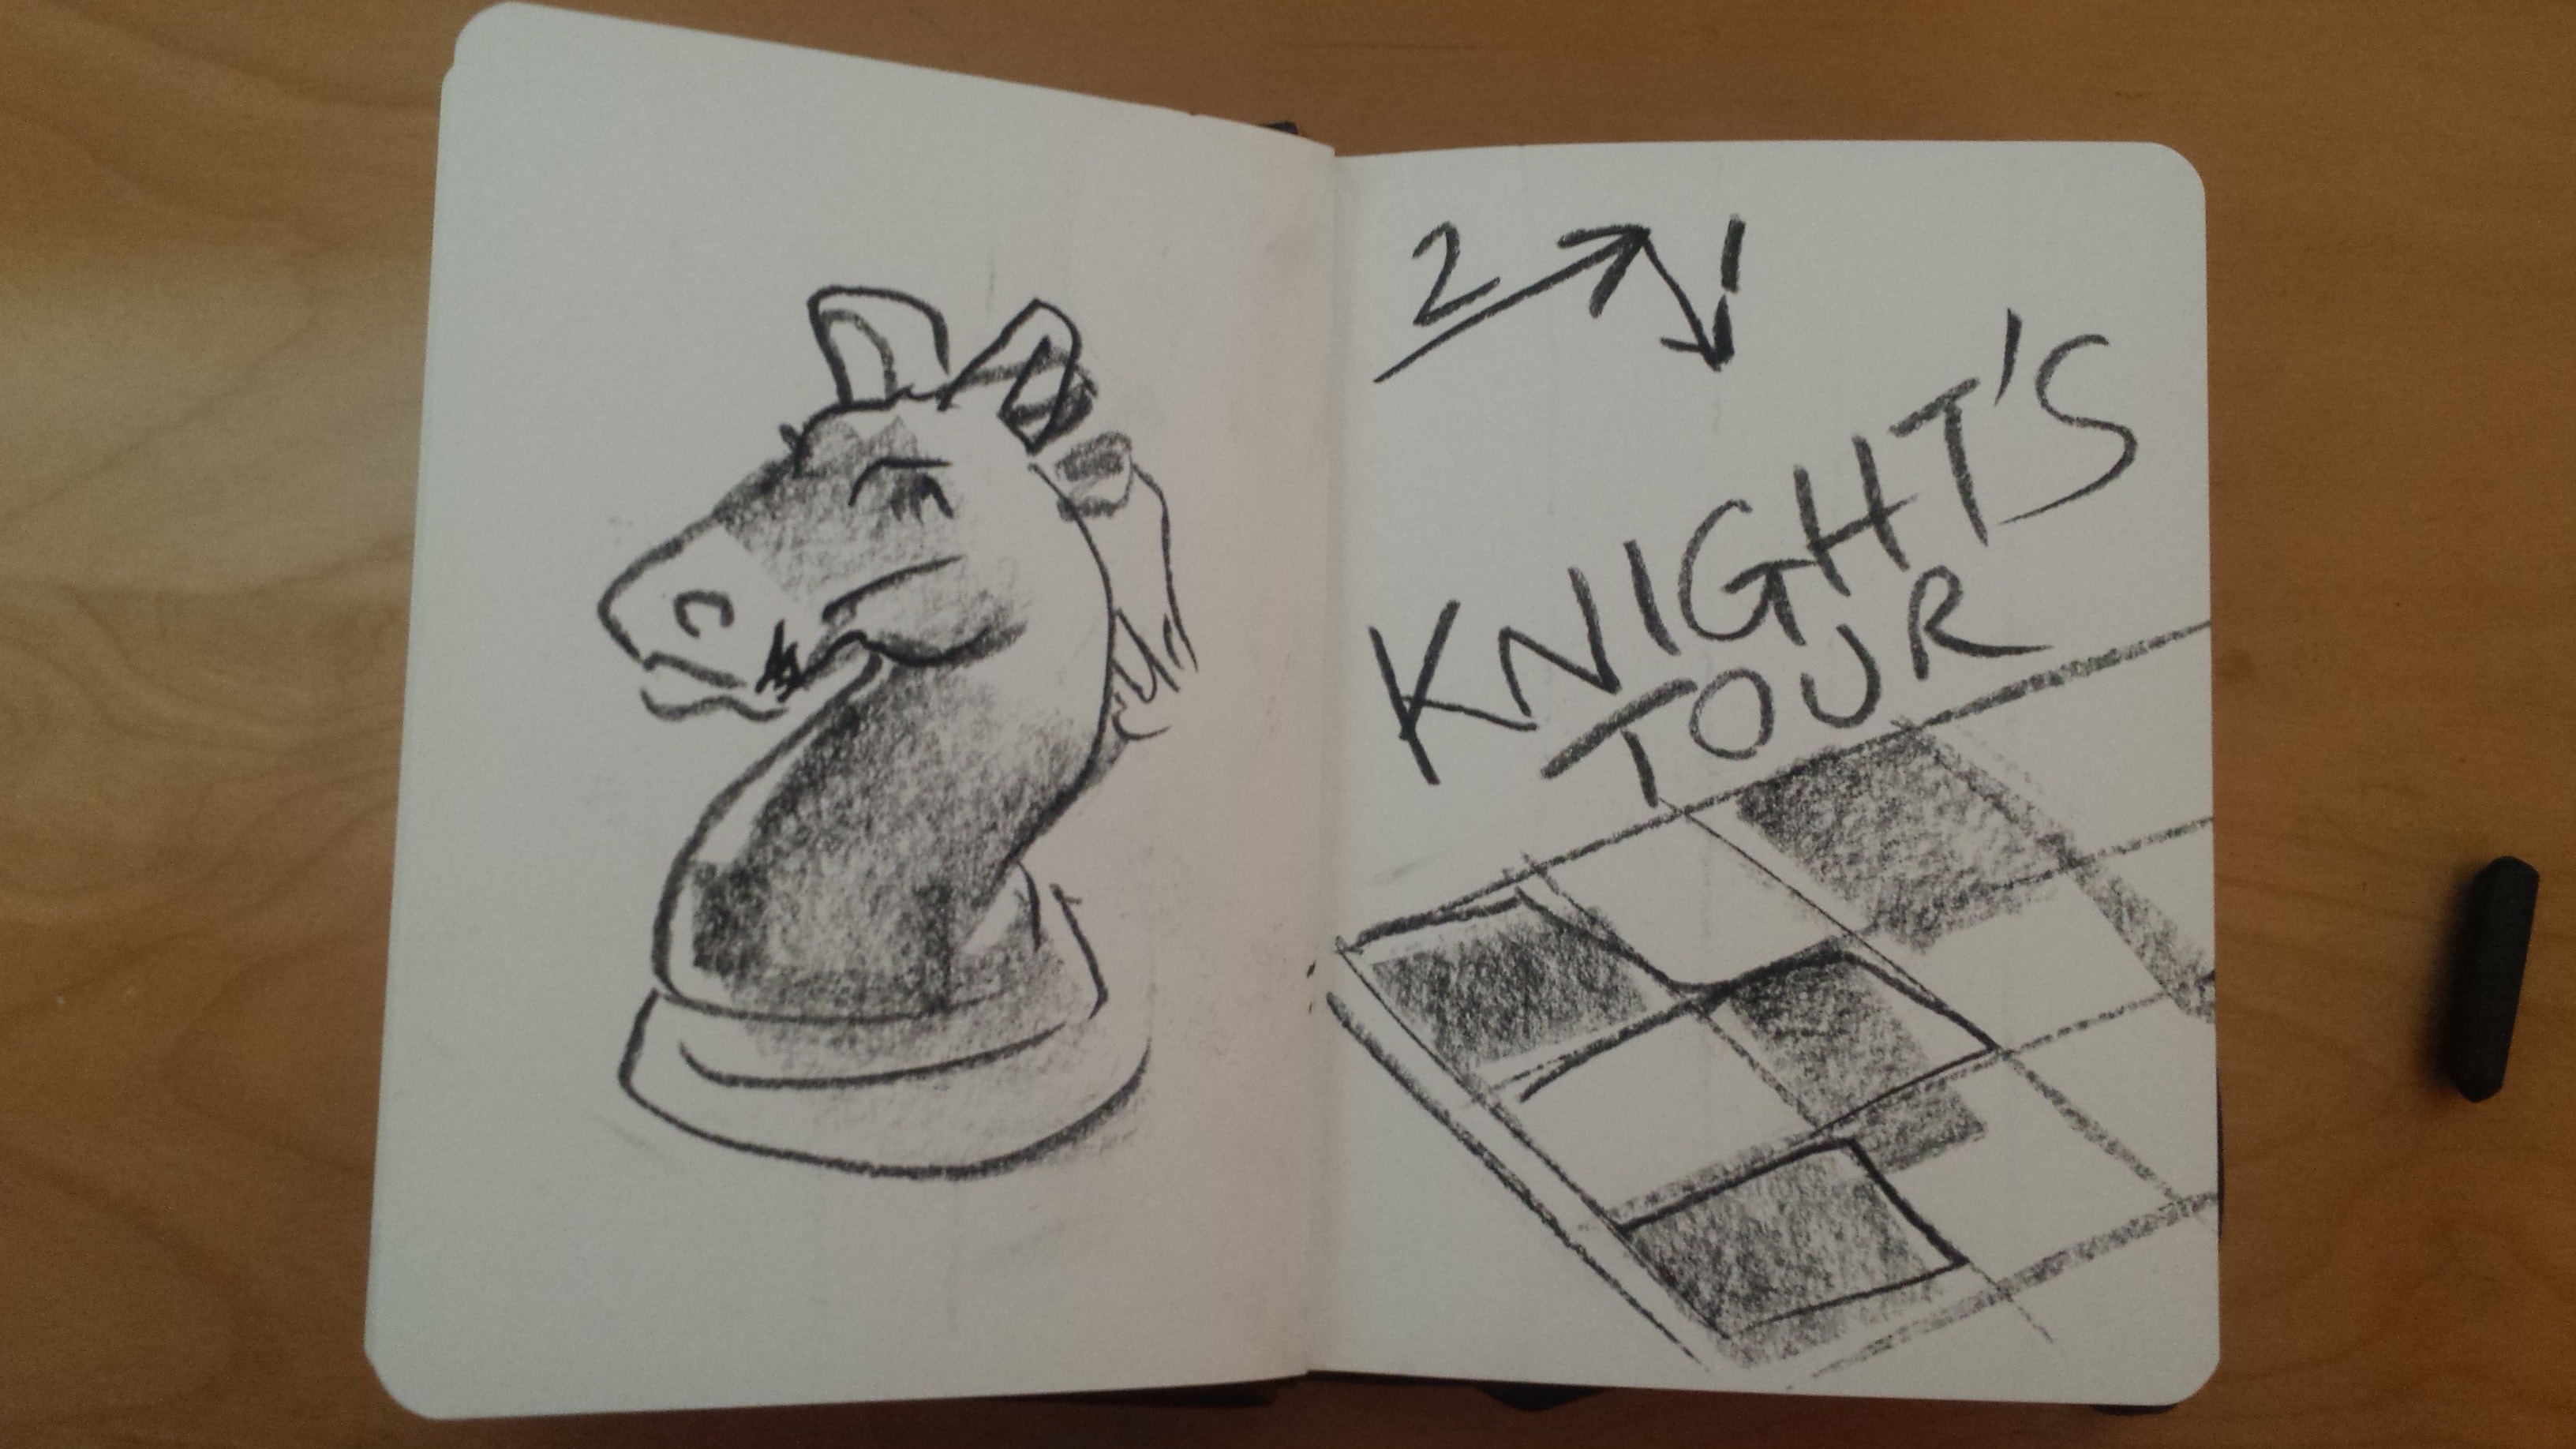 2 1
KNIGHT'S
TOUR